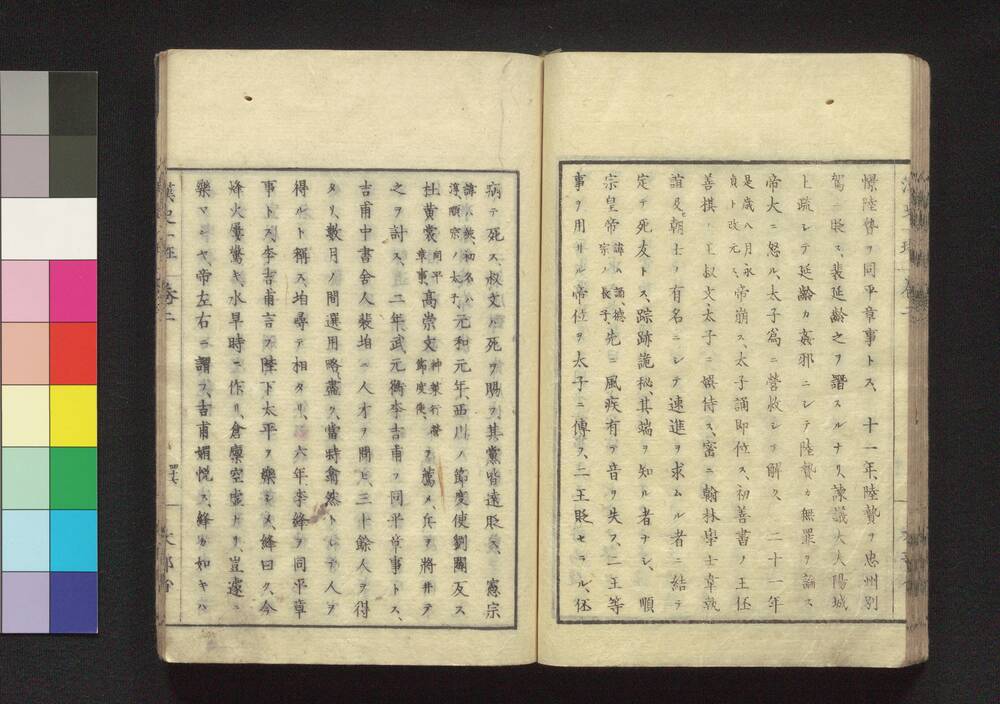 憬陸贄ヲ同平章事トス、 十一年、陸贄ヲ忠州別
駕ニ貶ス、裴延齡之ヲ譖スルナリ、諫議大夫陽城
上疏シテ延齡カ姦邪ニシテ陸贄カ無罪ヲ論ス
帝大ニ怒ル、太子爲ニ營救シテ解ク、 二十一年
是歳八月永
貞ト改元ス、
帝崩ス、太子誦即位ス、初善書ノ王伾
善棋ノ王叔文、太子ニ娯侍ス、密ニ翰林學士韋執
誼及ヒ朝士ノ有名ニシテ速進ヲ求ムル者ニ結テ
定テ死友トス、踪跡詭秘、其端ヲ知ル者ナシ、 順
宗皇帝
諱ハ誦、德
宗ノ長子、
先ニ風疾有テ音ヲ失ス、二王等
事ヲ用ヰル、帝位ヲ太子ニ傳フ、二王貶セラル、伾
病テ死ス、叔文ハ死ヲ賜フ、其黨皆遠貶ス、 憲宗
諱ハ純、初名ハ
淳、順宗ノ太子、
元和元年、西川ノ節度使劉闢反ス
杜黄裳
同平
章事、
高崇文
神策行營
節度使、
ヲ薦メ、兵ヲ將井テ
之ヲ討ス、 二年武元衡李吉甫ヲ同平章事トス、
吉甫中書舎人裴垍ニ人才ヲ問ヒ、三十餘人ヲ得
タリ、數月ノ間選用略盡ク、當時翕然トシテ人ヲ
得ルト稱ス、垍尋テ相タリ、 六年、李絳ヲ同平章
事トス、李吉甫言フ陛下太平ヲ樂シメ、絳曰ク、今
烽火屢驚キ、水旱時ニ作リ、倉廩空虚ナリ、豈遽ニ
樂マンヤ、帝左右ニ謂フ、吉甫媚悦ス、絳カ如キハ
漢史一斑
卷二